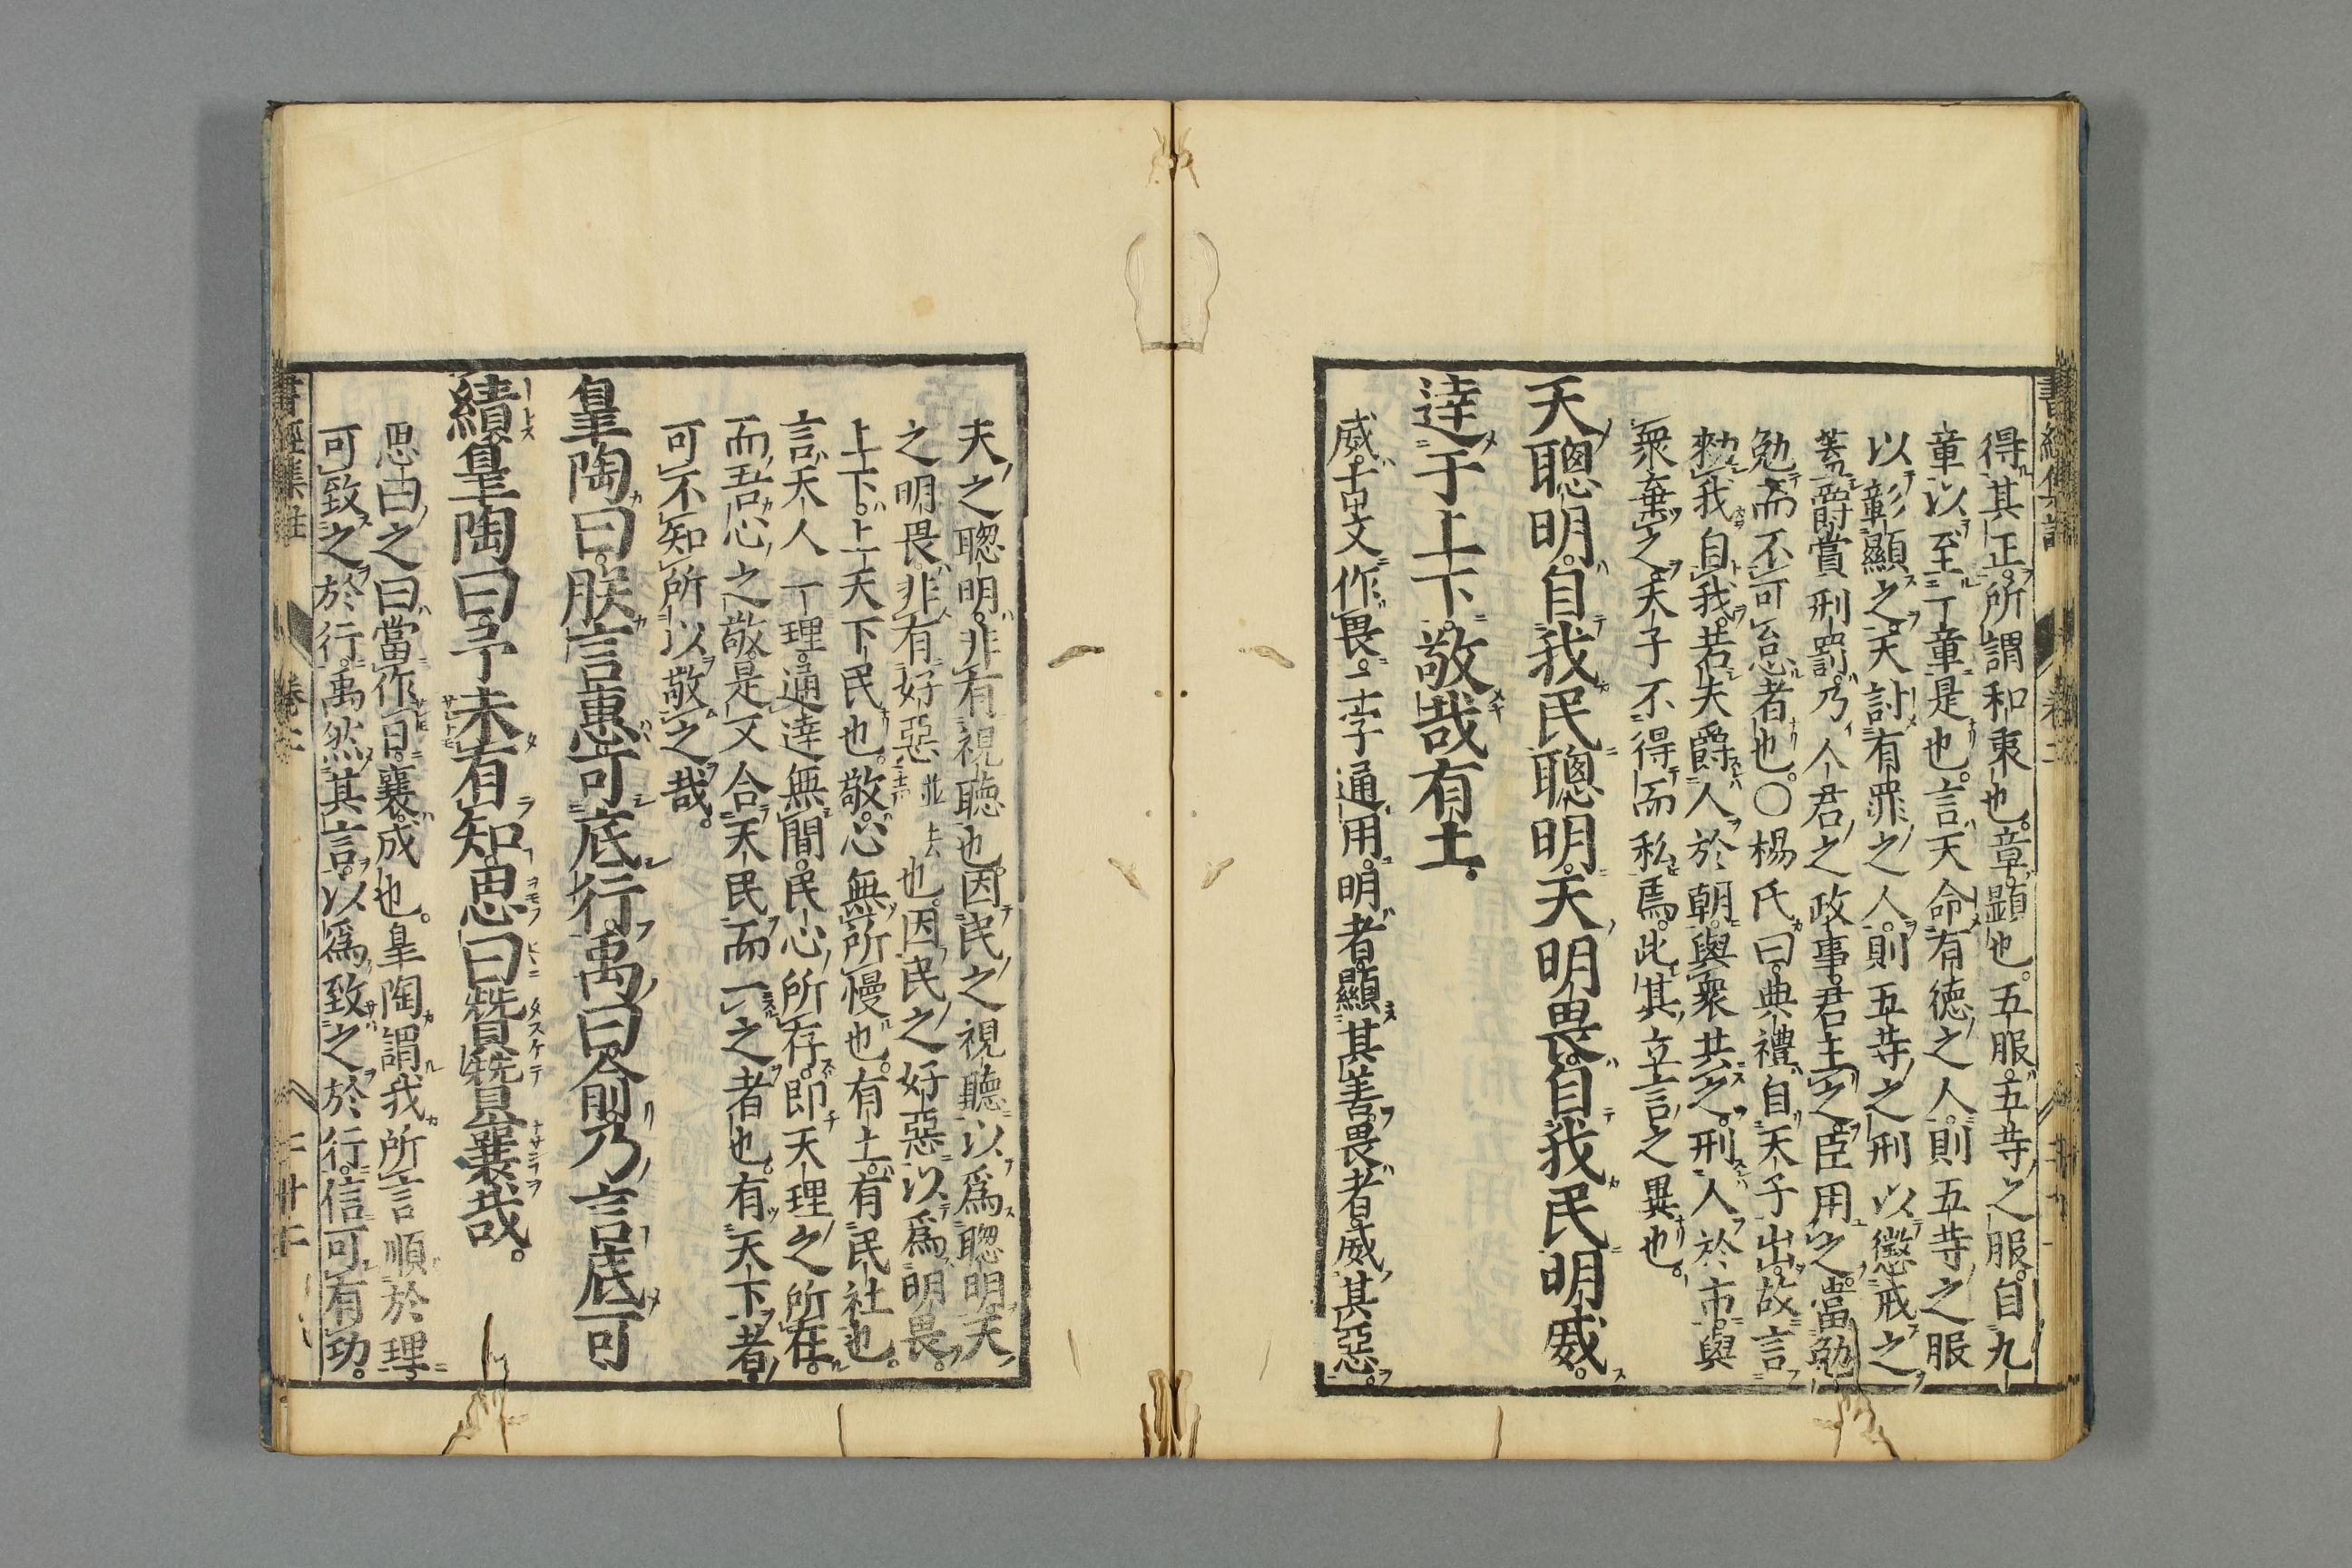 得其正所謂和衷也。章顯也。五服。五等之服。自九
章以至一章是也。言天命有德之人。則五等之服
以彰顯之。天討有罪之人。則五等之刑以懲戒之。
蓋爵賞刑罰。乃人君之政事。君主之。臣用之。當勉
勉而不可怠者也。○楊氏曰。典禮自天子出。故言
勑我自我。若夫爵人於朝。與衆共之。刑人於市。與
衆棄之。天子不得而私焉。此其立言之異也。
天聰明。自我民聰明。天明畏。自我民明威。
達于上下。敬哉有土。
威。古文作畏。二字通用。明者。顯其善。畏者。威其惡。
天之聰明。非有視聽也。因民之視聽以爲聰明。天
之明畏。非有好惡並去聲也。因民之好惡以爲明畏。
上下。上天下民也。敬。心無所慢也。有土。有民社也。
言天人一理。通達無間。民心所存。即天理之所在。
而吾心之敬。是又合天民而一之者也。有天下者。
可不知所以敬之哉。
皐陶曰。朕言惠可底行。禹曰。兪。乃言底可
績。皐陶曰。予未有知。思曰贊贊襄哉。
思曰之曰。當作日。襄。成也。皐陶謂我所言順於理。
可致之於行。禹然其言。以爲致之於行。信可有功。
書經集註 卷二 二十二